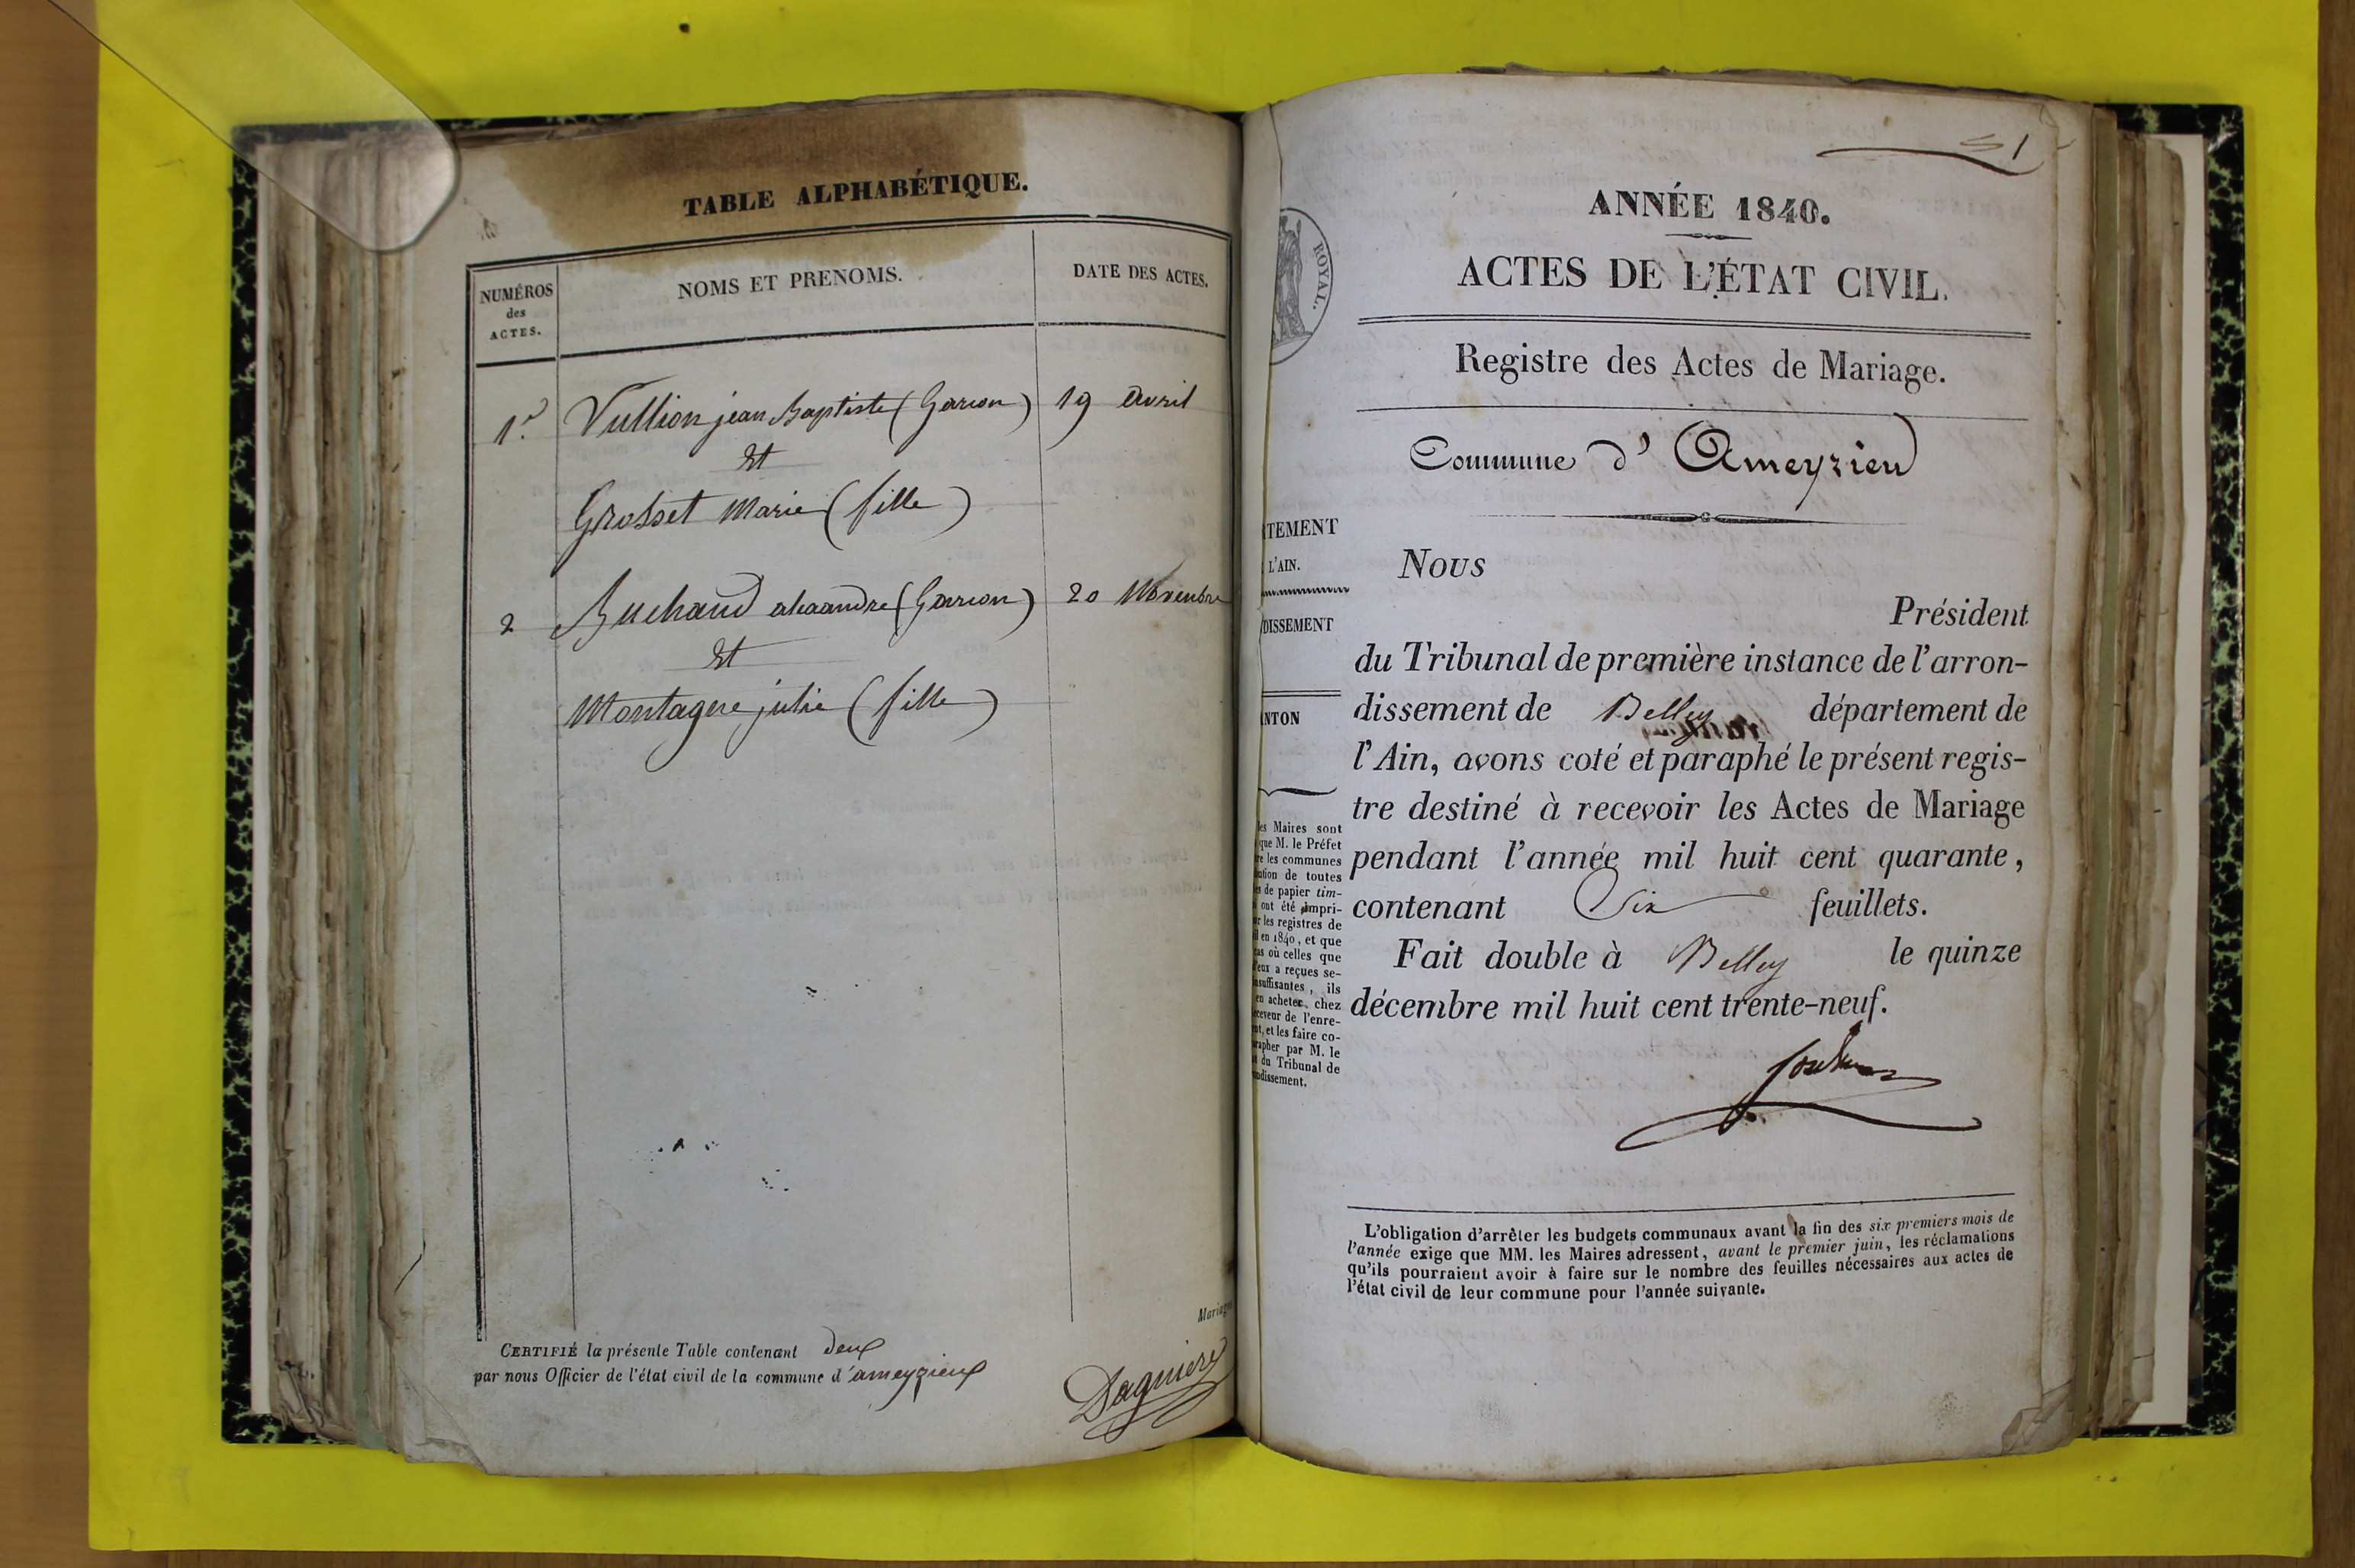 TABLE ALPHABÉTIQUE.
NUMÉROS
des
ACTES.
NOMS ET PRENOMS.
DATE DES ACTES.
1.r Vullion jean Baptiste (Garcon) 19 avril
Et
Grosset Marie (fille)
2 Buchaud alexandre (Garcon) 20 Novembre
Et
Montagne julie (fille)
Mariages
CERTIFIÉ la présente Table contenant deux
par nous Officier de l'état civil de la commune d'ameyzieux
ROYAL.
ANNÉE 1840.
ACTES DE L'ÉTAT CIVIL.
Registre des Actes de Mariage.
Commune d' Ameyzieu
TEMENT
L'AIN.
DISSEMENT
NTON
es Maires sont
que M. le Préfet
re les communes
ution de toutes
s de papier tim-
ont été impri-
r les registres de
il en 1840, et que
as où celles que
'eux a reçues se-
nsuffisantes, ils
en acheter chez
ceveur de l'enre-
nt, et les faire co-
rapher par M. le
du Tribunal de
ndissement.
Nous
Président
du Tribunal de première instance de l'arron-
dissement de Belley département de
l'Ain, avons coté et paraphé le présent regis-
tre destiné à recevoir les Actes de Mariage
pendant l'année mil huit cent quarante,
contenant Six feuillets.
Fait double à Belley le quinze
décembre mil huit cent trente-neuf.
L'obligation d'arrêter les budgets communaux avant la fin des six premiers mois de
l'année exige que MM. les Maires adressent, avant le premier juin, les réclamations
qu'ils pourraient avoir à faire sur le nombre des feuilles nécessaires aux actes de
l'état civil de leur commune pour l'année suivante.